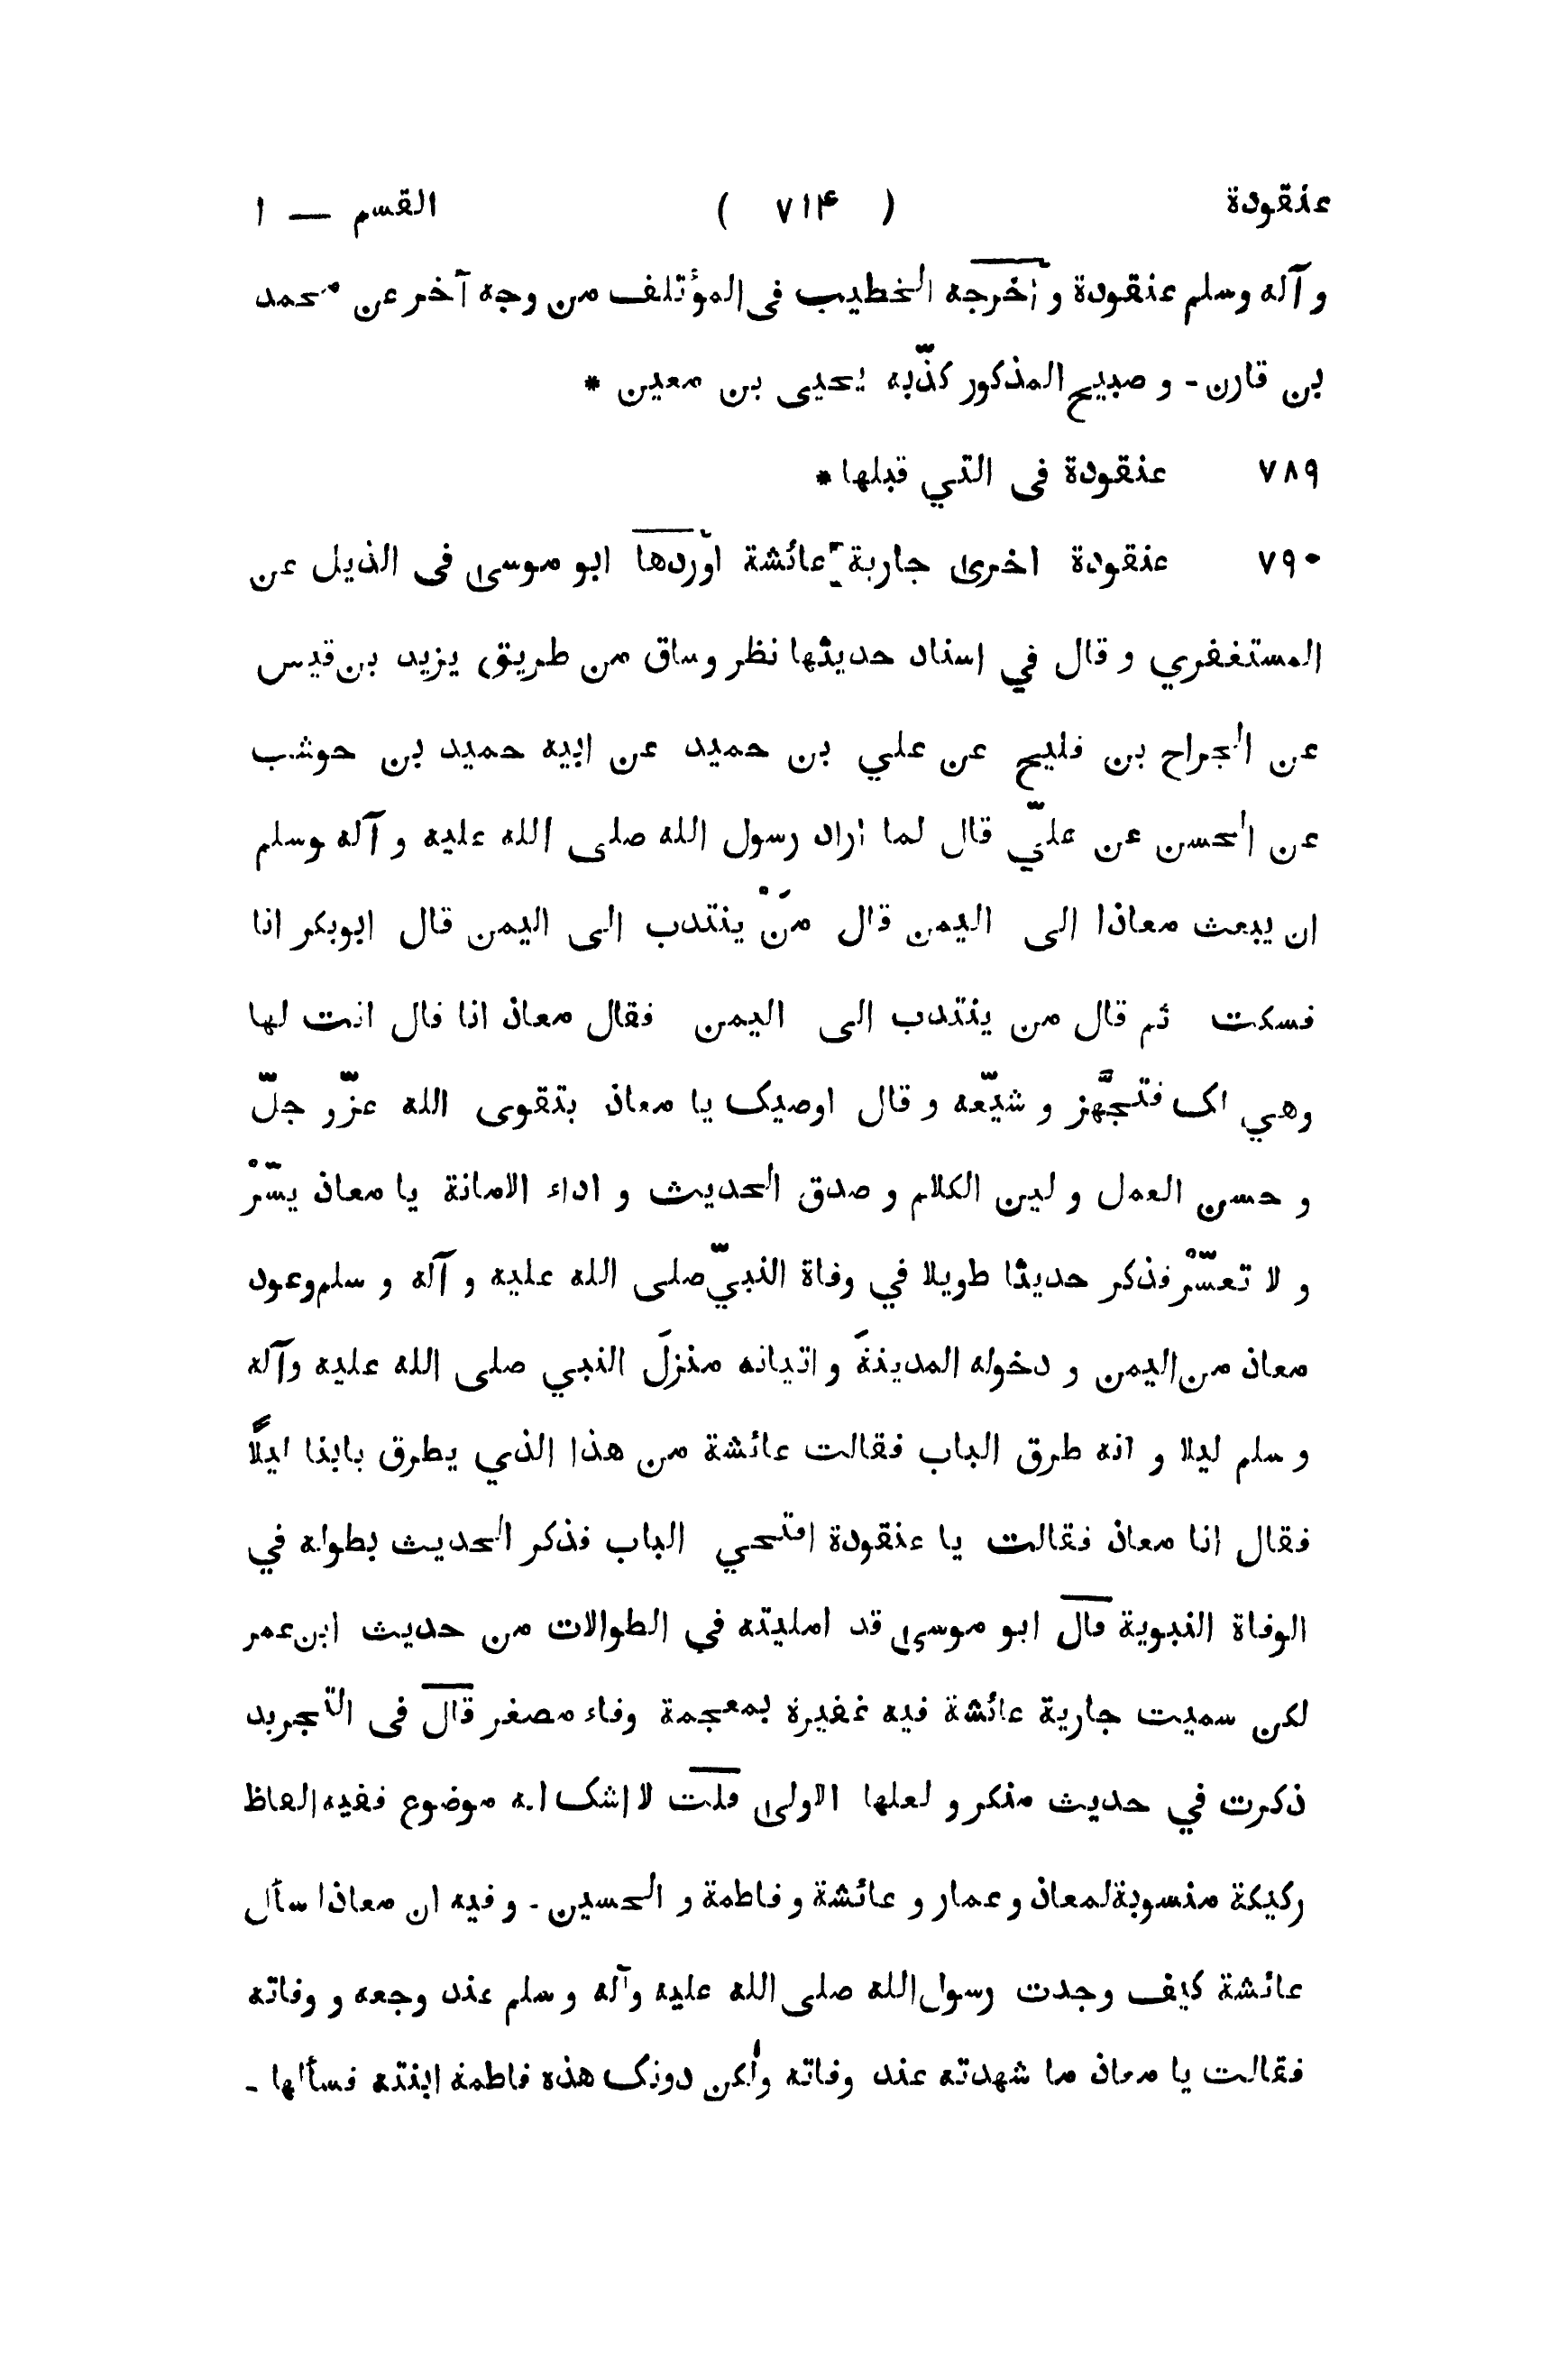 عنقودة ( ٧١٤ ) القسم — ١
و آله وسلم عنقودة و أخرجه الخطيب فى المؤتلف من وجه آخر عن محمد
بن قارن - و صبيح المذكور كذّبه يحيى بن معين *
٧٨٩ عنقودة فى التي قبلها *
٧٩٠ عنقودة اخرى جارية عائشة اوردها ابو موسى فى الذيل عن
المستغفري و قال في اسناد حديثها نظر وساق من طريق يزيد بن قيس
عن الجراح بن فليح عن علي بن حميد عن ابيه حميد بن حوشب
عن الحسن عن عليّ قال لما أراد رسول الله صلى الله عليه و آله وسلم
ان يبعث معاذا إلى اليمن قال مَنْ ينتدب إلى اليمن قال ابوبكر انا
فسكت ثم قال من ينتدب إلى اليمن فقال معاذ انا قال انت لها
وهي لك فتجهَّز و شيّعه و قال اوصيك يا معاذ بتقوى الله عزّ و جلّ
و حسن العمل و لين الكلام و صدق الحديث و اداء الامانة يا معاذ يسّرْ
و لا تعسّرْ فذكر حديثا طويلا في وفاة النبيّ صلى الله عليه و آله و سلم وعود
معاذ من اليمن و دخوله المدينةَ و اتيانه منزلَ النبي صلى الله عليه وآله
و سلم ليلا و انه طرق الباب فقالت عائشة من هذا الذي يطرق بابنا ليلًا
فقال انا معاذ فقالت يا عنقودة افتحي الباب فذكر الحديث بطوله في
الوفاة النبوية قال ابو موسى قد امليته في الطوالات من حديث ابن عمر
لكن سميت جارية عائشة فيه غفيرة بمعجمة وفاء مصغر قال فى التجريد
ذكرت في حديث منكر و لعلها الاولى قلت لا اشك انه موضوع ففيه الفاظ
ركيكة منسوبة لمعاذ و عمار و عائشة و فاطمة و الحسين - و فيه ان معاذا سأل
عائشة كيف وجدت رسول الله صلى الله عليه وآله و سلم عند وجعه و وفاته
فقالت يا معاذ ما شهدته عند وفاته ولكن دونك هذه فاطمة ابنته فسألها -